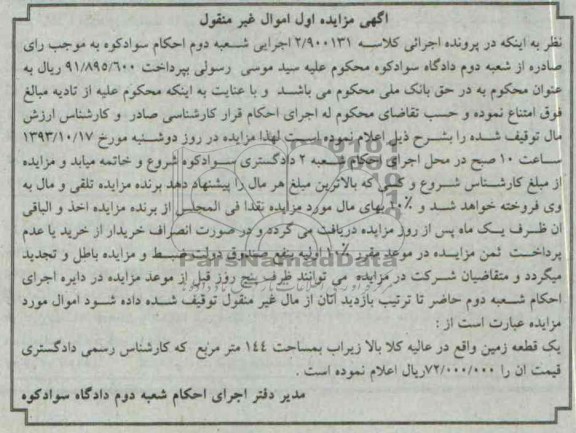 آگهی مزایده اول اموال غیر منقول
نظر به اینکه در پرونده اجرائی کلاسه ۲/۹۰۰۱۳۱ اجرایی شعبه دوم احکام سوادکوه به موجب رای
صادره از شعبه دوم دادگاه سوادکوه محکوم علیه سید موسی رسولی بپرداخت ۹۱/۸۹۵/۶۰۰ ریال به
عنوان محکوم به در حق بانک ملی محکوم می باشد و با عنایت به اینکه محکوم علیه از تادیه مبالغ
فوق امتناع نموده و حسب تقاضای محکوم له اجرای احکام قرار کارشناسی صادر و کارشناس ارزش
مال توقیف شده را بشرح ذیل اعلام نموده است لهذا مزایده در روز دوشنبه مورخ ۱۳۹۳/۱۰/۱۷
ساعت ۱۰ صبح در محل اجرای احکام شعبه ۲ دادگستری سوادکوه شروع و خاتمه میابد و مزایده
از مبلغ کارشناس شروع و کسی که بالاترین مبلغ هر مال را پیشنهاد دهد برنده مزایده تلقی و مال به
وی فروخته خواهد شد و ۱۰٪ بهای مال مورد مزایده نقدا فی المجلس از برنده مزایده اخذ و الباقی
ان ظرف یک ماه پس از روز مزایده دریافت می گردد و در صورت انصراف خریدار از خرید یا عدم
پرداخت ثمن مزایده در موعد مقرر ۱۰٪ اولیه بنفع صندوق دولت ضبط و مزایده باطل و تجدید
میگردد و متقاضیان شرکت در مزایده می توانند ظرف پنج روز قبل از موعد مزایده در دایره اجرای
احکام شعبه دوم حاضر تا ترتیب بازدید آنان از مال غیر منقول توقیف شده داده شود اموال مورد
مزایده عبارت است از :
یک قطعه زمین واقع در عالیه کلا بالا زیراب بمساحت ۱۴۴ متر مربع که کارشناس رسمی دادگستری
قیمت ان را ۷۲/۰۰۰/۰۰۰ریال اعلام نموده است .
مدیر دفتر اجرای احکام شعبه دوم دادگاه سوادکوه
ParsNamadData